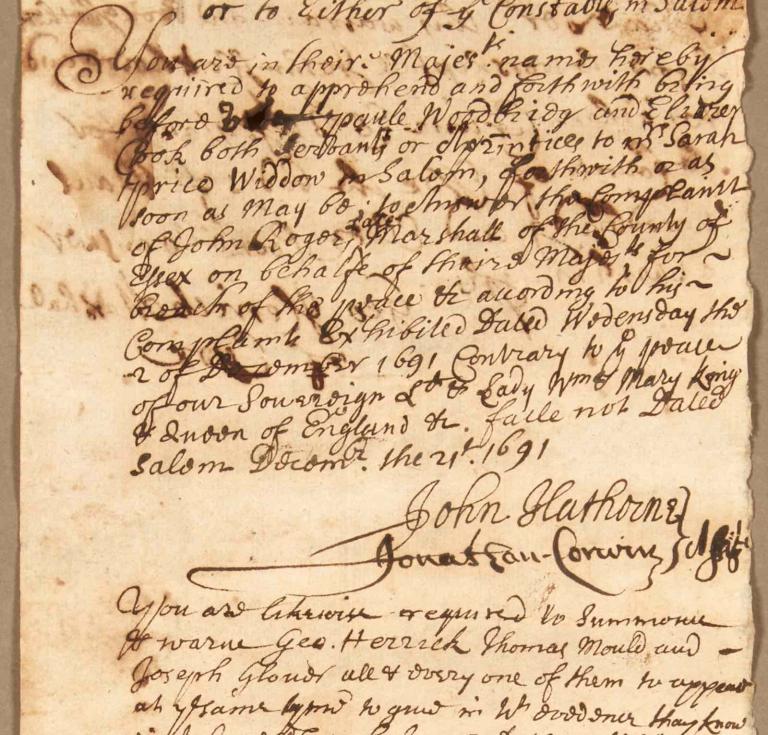 or to Either of ye Constables in Salem
You are in theire Majests names hereby
required to apprehend and forthwith bring
before paule Woodbridg and Eliezer
Cook both servants or Aprintices to mrs Sarah
price Widdow in Salem, forthwith or as
soon as May be, to Answer the Complaint
of John Rogers, Marshall of the County of
Essex on behalfe of theire Majests for
breach of the peace &c acording to his
Complaint Exhibited Dated Wedensday the
2 of December 1691 Contrary to ye peace
of our Sovereign Ld & Lady Wm & Mary King
& Queen of England &c. faile not Dated
Salem Decembr. the 21t. 1691
John Hathorne
Jonathan Corwin
You are likewise required to Summone
& warne Geo. Herrick Thomas Mould and
Joseph Glover all & every one of them to appear
at ye same tyme to give in wt evedence thay know